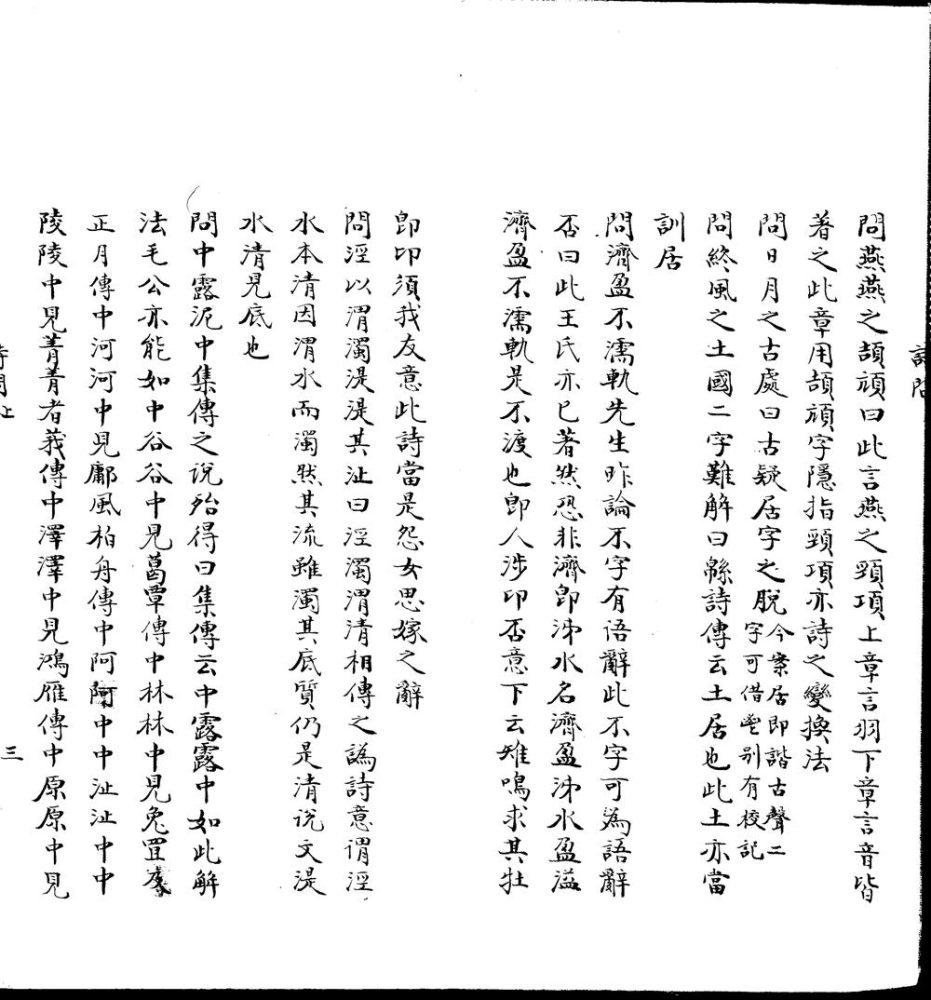 問燕燕之頡頏曰此言燕之頸項上章言羽下章言音皆
著之此章用頡頏字隱指頸項亦詩之變換法
問日月之古處曰古疑居字之脫今案居即諧古聲二字可借壁别有校記
問終風之土國二字難解曰緜詩傳云土居也此土亦當
訓居
問濟盈不濡軌先生昨論不字有语辭此不字可為語辭
否曰此王氏亦已著然恐非濟卽泲水名濟盈泲水盈溢
濟盈不濡軌是不渡也卽人涉卬否意下云雉鳴求其牡
卽卬須我友意此詩當是怨女思嫁之辭
問涇以渭濁湜湜其沚曰涇濁渭清相傳之譌詩意謂涇
水本清因渭水而濁然其流雖濁其底質仍是清说文湜
水清見底也
問中露泥中集傳之说殆得曰集傳云中露露中如此解
法毛公亦能如中谷谷中見葛覃傳中林林中見兔罝
正月傳中河河中見鄘風柏舟傳中阿阿中中沚沚中中
陵陵中見菁菁者莪傳中澤澤中見鴻雁傳中原原中見
三